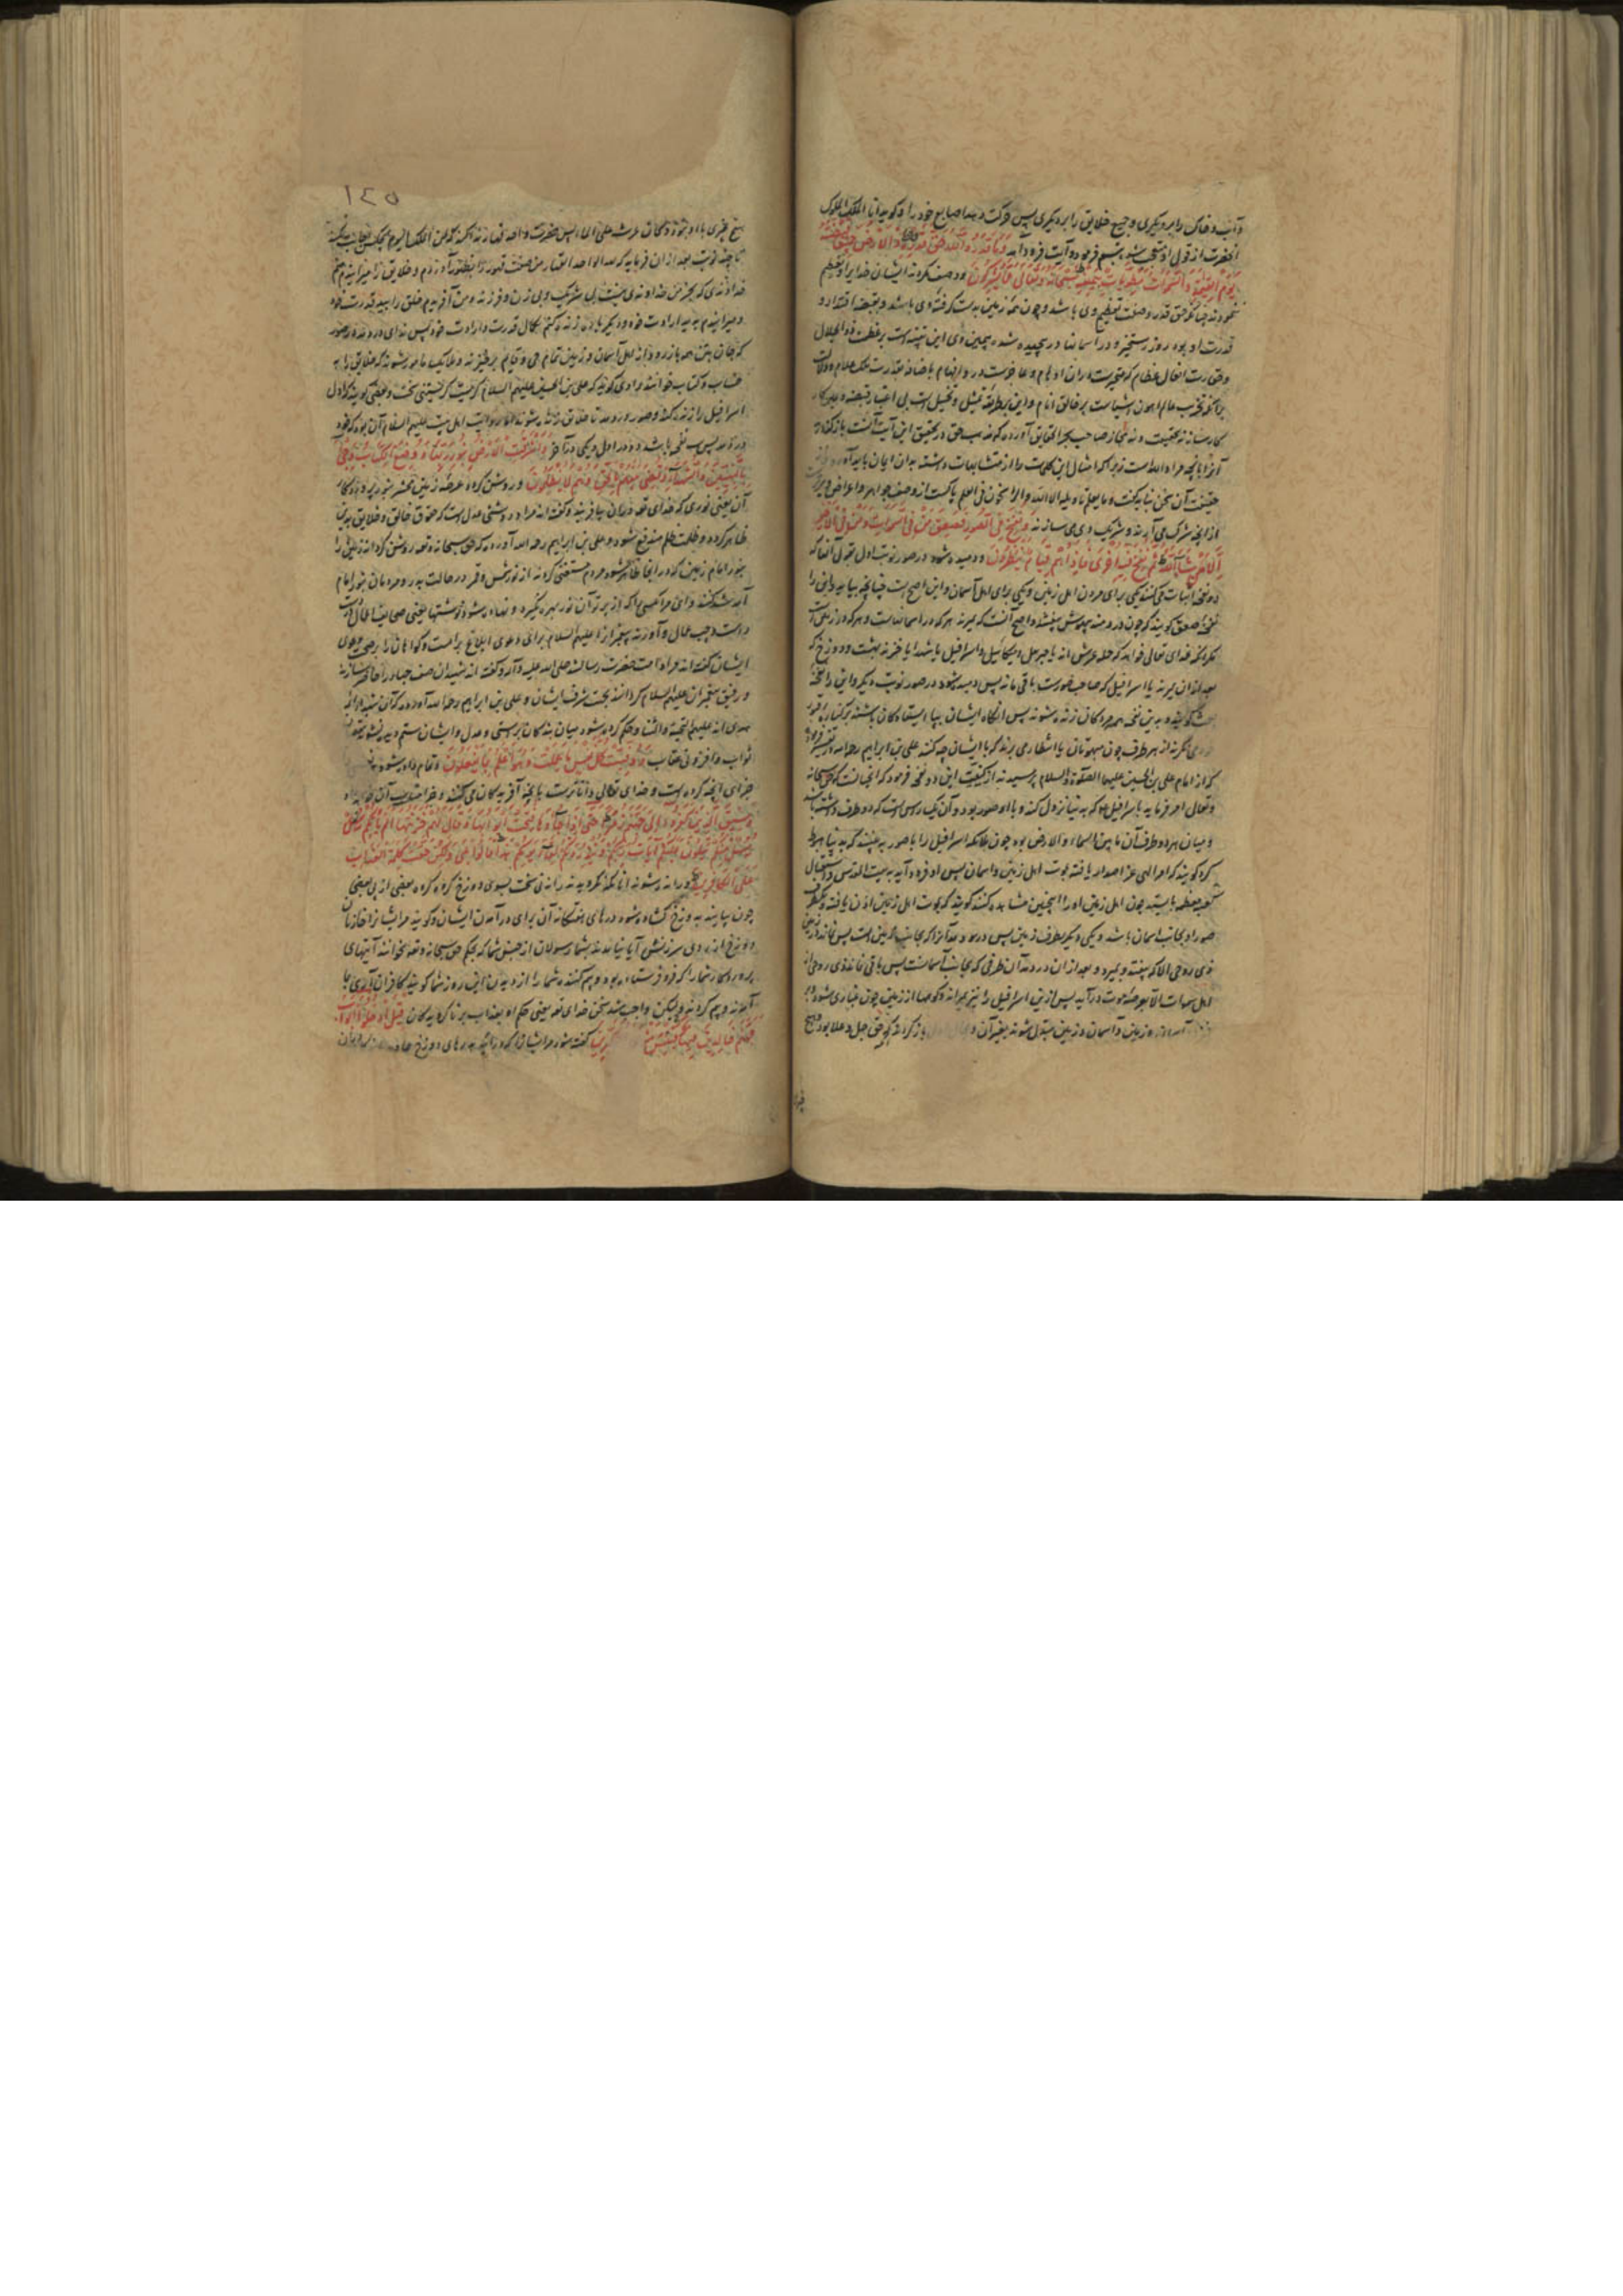 و آب و خاک را بر دیگری و جمیع خلایق را بر دیگری پس حرکت دهد اصابع خود را و گوید انا الملک الملوک
آنحضرت از قول او متعجب شد و تبسم فرموده و آیت فرود آمد وَمَا قَدَرُوا اللَّهَ حَقَّ قَدْرِهِ وَالْأَرْضُ جَمِيعًا قَبْضَتُهُ
يَوْمَ الْقِيَامَةِ وَالسَّمَاوَاتُ مَطْوِيَّاتٌ بِيَمِينِهِ سُبْحَانَهُ وَتَعَالَى عَمَّا يُشْرِكُونَ و وصف نکردند ایشان خدایرا و تعظیم
ننمودند چنانکه حق قدر و صفت تعظیم وی باشد و چون همه زمین بدست گرفته وی باشد و بقبضه اقتدار و
قدرت او بود روز رستخیز و در آسمانها در پیچیده شده بیمین وی این تنبیه است بر عظمت ذوالجلال
و حقارت افعال عظام که متحیرست در آن اوهام و عاجزست در و افهام باضافه بقدرت ملک علام و دلالت
بر آنکه تخریب عالم اهون اشیاست بر خالق انام و این بر طریقه تمثیل و تخییل است بی اعتبار قبضه و یمین
نه حقیقت و نه مجاز صاحب بحر الحقایق آورده که مذهب حق در تحقیق این آیت آنست باز گذارند
آنرا بآنچه مراد الله است زیرا که امثال این کلمات را از متشابهات دانسته بدان ایمان باید آورد
حقیقت آن سخن نباید گفت و ما یعلم تاویله الا الله و الراسخون فی العلم پاکست از وصف جواهر و اعراض
از آنچه شرک می آرند و شریک وی می سازند وَنُفِخَ فِي الصُّورِ فَصَعِقَ مَنْ فِي السَّمَاوَاتِ وَمَنْ فِي الْأَرْضِ
إِلَّا مَنْ شَاءَ اللَّهُ ثُمَّ نُفِخَ فِيهِ أُخْرَى فَإِذَا هُمْ قِيَامٌ يَنْظُرُونَ و دمیده شود در صور نوبت اول بقول آنها که
دو نفخه اثبات می کنند یکی برای مردن اهل زمین و یکی برای اهل آسمان و این اصح است چنانچه بیاید
نفخه صعق گویند که چون در دمند بیهوش بیفتند و اصح آنست که بمیرند هر که در آسمانهاست و هر که در زمین است
مگر آنکه خدای تعالی خواهد که حمله عرش اند یا جبرئیل و میکائیل و اسرافیل یا شهدا یا خزنه بهشت و دوزخ که
بعد از آن بمیرند یا اسرافیل که صاحب صورست باقی ماند پس دمیده شود در صور نوبت دیگر و این را نفخه
بعث گویند و بدین نفخه همه مردگان زنده شوند پس آنگاه ایشان بپا ایستادگان باشند بر کناره قبور
نگرند از هر طرف چون مبهوتان یا انتظار می برند که با ایشان چه کنند علی بن ابراهیم رحمه الله در تفسیر
که از امام علی بن الحسین علیهما الصلوة و السلام پرسیدند از کیفیت این دو نفخه فرمود که آنچنانست که حق سبحانه
و تعالی امر فرماید باسرافیل که بدنیا نزول کند و با او صور بود و آن یک راس است که دو طرف داشته باشد
و میان هر دو طرف آن ما بین السماء و الارض بود چون ملائکه اسرافیل را با صور به بینند که بدنیا هبوط
کرد گویند که امر الهی عز اصداد یافته بموت اهل زمین و آسمان پس او فرود آید به بیت المقدس و استقبال
کعبه معظمه بایستد چون اهل زمین او را اینچنین مشاهده کنند گویند که بموت اهل زمین اذن یافته
صور او بجانب آسمان باشد و یکی دیگر بطرف زمین پس در
ذی روحی الا که بیفتد و بمیرد و بعد از آن در دمد آن طرفی که بجانب آسمانست پس باقی نماند ذی روحی از
اهل سموات الا بعرصه موت در آید پس از این اسرافیل را نیز بمیراند و کوهها از زمین چون غباری شود
زمین و آسمان و زمین مبدل شوند بغیر آن باز گردند که حق جل و علا بود و هیچ
هیچ چیزی با او نبود و کان عرشه علی الماء پس حضرت واحد قهار ندا کند که لمن الملک الیوم هیچکس بجانب نکند
تا چند نوبت بعد از آن فرماید که لله الواحد القهار من صفت قهور را بظهور آوردم و خلایق را میرانیدم منم
خداوندی که بجز من خداوندی نیست بی شریک و بی زن و فرزند و من آفریدم خلق را بید قدرت خود
و میرانیدم به ید ارادت خود و دیگر باره زنده کنم بکمال قدرت و ارادت خود پس ندای در دمد در صور
که جان بتن همه باز رود از اهل آسمان و زمین تمام حی و قایم بر خیزند و ملائک مامور شوند که خلایق را به
حساب و کتاب خوانند راوی گوید که علی بن الحسین علیهم السلام گریست گریستنی سخت و بعضی گویند که اول
اسرافیل را زنده کند و صور در دمد تا خلایق زنده شوند اما روایت اهل بیت علیهم السلام آن بود که خود
در دمد پس سه نفخه باشد دو در اول و یکی در آخر وَأَشْرَقَتِ الْأَرْضُ بِنُورِ رَبِّهَا وَوُضِعَ الْكِتَابُ وَجِيءَ
بِالنَّبِيِّينَ وَالشُّهَدَاءِ وَقُضِيَ بَيْنَهُمْ بِالْحَقِّ وَهُمْ لَا يُظْلَمُونَ و روشن گردد عرصه زمین محشر بنور پروردگار
آن یعنی نوری که خدای تعه در آن بیافریند و گفته اند مراد روشنی عدل است که حقوق خالق و خلایق بدنیا
ظاهر کرده و ظلمت ظلم مندفع شود و علی بن ابراهیم رحمه الله آورده که حق سبحانه و تعه روشن گرداند زمین را
بنور امام زمین که در آنجا ظاهر شود و مردم مستغنی گردند از نور شمس و قمر در حالت بدر و مردمان بنور امام
آمد شد کنند وای مر آنکسی را که از پرتو آن نور بهره نگیرد و نهاده شود نوشتها یعنی صحایف اعمال در
راست و چپ عمال و آورند پیغمبرانرا علیهم السلام برای دعوی ابلاغ بر امت و گواهان را بر صحت دعوی
ایشان گفته اند مراد امت حضرت رسالت صلی الله علیه و آله و گفته اند شهیدان صف جهاد را حاضر سازند
و رفیق پیغمبران علیهم السلام گردانند بجهت شرف ایشان و علی بن ابراهیم رحمه الله آورده که آن شهدا ائمه
هدی اند علیهم التحیة و الثنا و حکم کرده شود میان بندگان براستی و عدل و ایشان ستم دیده نشوند
ثواب و افزونی عقاب وَوُفِّيَتْ كُلُّ نَفْسٍ مَا عَمِلَتْ وَهُوَ أَعْلَمُ بِمَا يَفْعَلُونَ و تمام داده شود
جزای آنچه کرده است و خدای تعالی داناترست بآنچه آفریدگان می کنند و جزا مناسب آن خواهد داد
وَسِيقَ الَّذِينَ كَفَرُوا إِلَى جَهَنَّمَ زُمَرًا حَتَّى إِذَا جَاءُوهَا فُتِحَتْ أَبْوَابُهَا وَقَالَ لَهُمْ خَزَنَتُهَا أَلَمْ يَأْتِكُمْ
رُسُلٌ مِنْكُمْ يَتْلُونَ عَلَيْكُمْ آيَاتِ رَبِّكُمْ وَيُنْذِرُونَكُمْ لِقَاءَ يَوْمِكُمْ هَذَا قَالُوا بَلَى وَلَكِنْ حَقَّتْ كَلِمَةُ الْعَذَابِ
عَلَى الْكَافِرِينَ و رانده شوند آنانکه نگرویدند راندنی سخت بسوی دوزخ گروه گروه بعضی از پی بعضی
چون بیایند بدوزخ گشاده شود درهای هفتگانه آن برای درآمدن ایشان و گویند مر ایشانرا خازنان
دوزخ از روی سرزنش آیا نیامدند بشما رسولان از جنس شما که بحکم حق سبحانه و تعه بخوانند آیتهای
پروردگار شما را که فرو فرستاده بود و بیم کنند شما را از دیدن این روز شما گویند کافران آری
آمدند و بیم کردند و لیکن واجب شد سخن خدای تعه یعنی حکم او بعذاب بر ناگرویدگان قِيلَ ادْخُلُوا أَبْوَابَ
جَهَنَّمَ خَالِدِينَ فِيهَا فَبِئْسَ گفته شود مر ایشانرا که در آئید بدرهای دوزخ